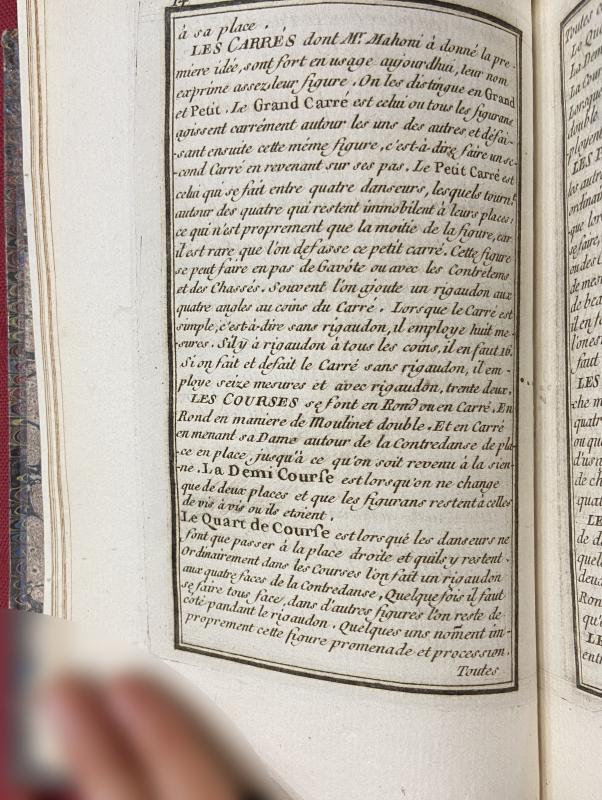 14
à sa place.
LES CARRÉS dont Mr. Mahoni à donné la pre-
miere idée, sont fort en usage aujourdhui, leur nom
exprime assez leur figure. On les distingue en Grand
et Petit. Le Grand Carré est celui ou tous les figurans
agissent carrément autour les uns des autres et défai-
sant ensuite cette même figure, c'est-à-dire faire un se-
cond Carré en revenant sur ses pas. Le Petit Carré est
celui qui se fait entre quatre danseurs, lesquels tourn.t
autour des quatre qui restent immobilent à leurs places:
ce qui n'est proprement que la moitie de la figure, car
il est rare que l'on defasse ce petit carré. Cette figure
se peut faire en pas de Gavôte ou avec les Contretems
et des Chassés. Souvent l'on ajoute un rigaudon aux
quatre angles au coins du Carré. Lorsque le Carré est
simple, c'est-à-dire sans rigaudon, il employe huit me-
sures. S'il y à rigaudon à tous les coins, il en faut 16.
Si on fait et defait le Carré sans rigaudon, il em-
ploye seize mesures et avec rigaudon, trente deux.
LES COURSES se font en Rond ou en Carré. En
Rond en maniere de Moulinet double. Et en Carré
en menant sa Dame autour de la Contredanse de pla-
ce en place, jusqu'à ce qu'on soit revenu à la sien-
ne. La Demi Course est lorsqu'on ne change
que de deux places et que les figurans restent à celles
de vis à vis ou ils etoient.
Le Quart de Course est lorsque les danseurs ne
font que passer à la place droite et quils y restent.
Ordinairement dans les Courses l'on fait un rigaudon
aux quatre faces de la Contredanse, Quelque fois il faut
se faire tous face, dans d'autres figures l'on reste de
côté pandant le rigaudon. Quelques uns nom̃ent im-
proprement cette figure promenade et procession.
Toutes